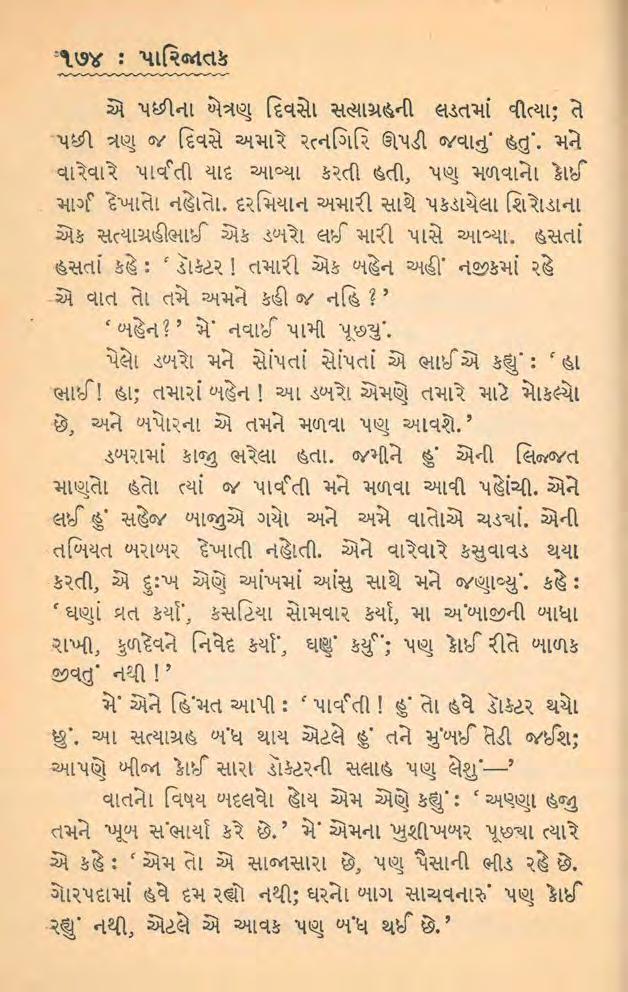 ૧૭૪ : પારિજાતક
એ પછીના બેત્રણ દિવસો સત્યાગ્રહની લડતમાં વીત્યા; તે
પછી ત્રણ જ દિવસે અમારે રત્નગિરિ ઊપડી જવાનું હતું. મને
વારેવારે પાર્વતી યાદ આવ્યા કરતી હતી, પણ મળવાનો કોઈ
માર્ગ દેખાતો નહોતો. દરમિયાન અમારી સાથે પકડાયેલા શિરોડાના
એક સત્યાગ્રહીભાઈ એક ડબરો લઈ મારી પાસે આવ્યા. હસતાં
હસતાં કહે : ‘ ડૉક્ટર ! તમારી એક બહેન અહીં નજીકમાં રહે
એ વાત તો તમે અમને કહી જ નહિ ? ’
‘ બહેન ? ’ મેં નવાઈ પામી પૂછ્યું.
પેલો ડબરો મને સોંપતાં સોંપતાં એ ભાઈએ કહ્યું : ‘ હા
ભાઈ ! હા; તમારાં બહેન ! આ ડબરો એમણે તમારે માટે મોકલ્યો
છે, અને બપોરના એ તમને મળવા પણ આવશે. ’
ડબરામાં કાજુ ભરેલા હતા. જમીને હું એની લિજ્જત
માણતો હતો ત્યાં જ પાર્વતી મને મળવા આવી પહોંચી. એને
લઈ હું સહેજ બાજુએ ગયો અને અમે વાતોએ ચડચાં. એની
તબિયત બરાબર દેખાતી નહોતી. એને વારેવારે કસુવાવડ થયા
કરતી, એ દુઃખ એણે આંખમાં આંસુ સાથે મને જણાવ્યું. કહે :
‘ ઘણાં વ્રત કર્યાં, કસટિયા સોમવાર કર્યા, મા અંબાજીની બાધા
રાખી, કુળદેવને નિવેદ કર્યાં, ઘણું કર્યું; પણ કોઈ રીતે બાળક
જીવતું નથી ! ’
મેં એને હિંમત આપી : ‘ પાર્વતી ! હું તો હવે ડૉક્ટર થયો
છું. આ સત્યાગ્રહ બંધ થાય એટલે હું તને મુંબઈ તેડી જઈશ;
આપણે બીજા કોઈ સારા ડૉક્ટરની સલાહ પણ લેશું—’
વાતનો વિષય બદલવો હોય એમ એણે કહ્યું : ‘ અણ્ણા હજુ
તમને ખૂબ સંભાર્યા કરે છે. ’ મેં એમના ખુશીખબર પૂછચા ત્યારે
એ કહે : ‘ એમ તો એ સાજાસારા છે, પણ પૈસાની ભીડ રહે છે.
ગોરપદામાં હવે દમ રહ્યો નથી; ઘરનો બાગ સાચવનારું પણ કોઈ
રહ્યું નથી, એટલે એ આવક પણ બંધ થઈ છે. ’